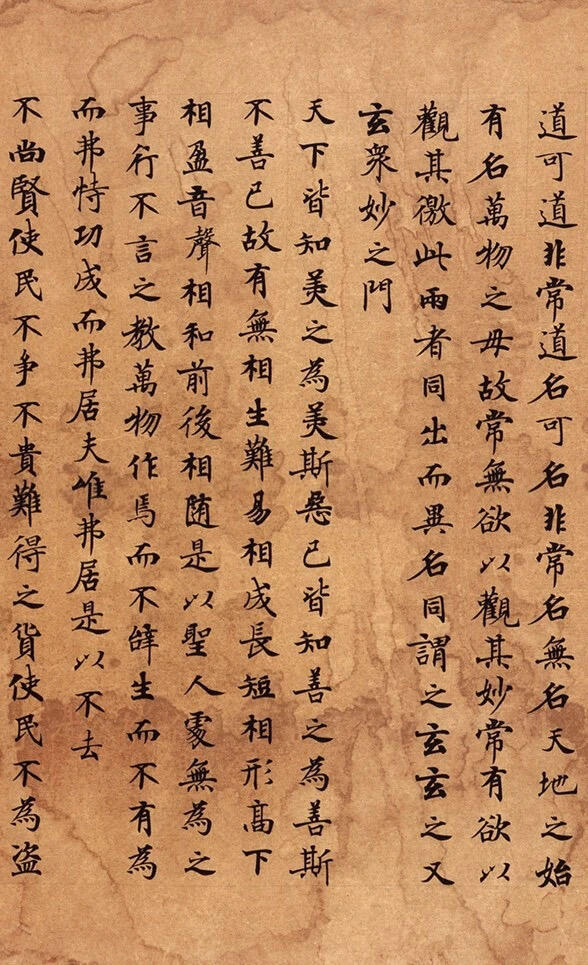 道可道非常道名可名非常名無名天地之始
有名萬物之母故常無欲以觀其妙常有欲以
觀其徼此兩者同出而異名同謂之玄玄之又
玄衆妙之門
天下皆知美之為美斯惡已皆知善之為善斯
不善已故有無相生難易相成長短相形高下
相盈音聲相和前後相随是以聖人處無為之
事行不言之教萬物作焉而不辤生而不有為
而弗恃功成而弗居夫唯弗居是以不去
不尚賢使民不争不貴難得之貨使民不為盗